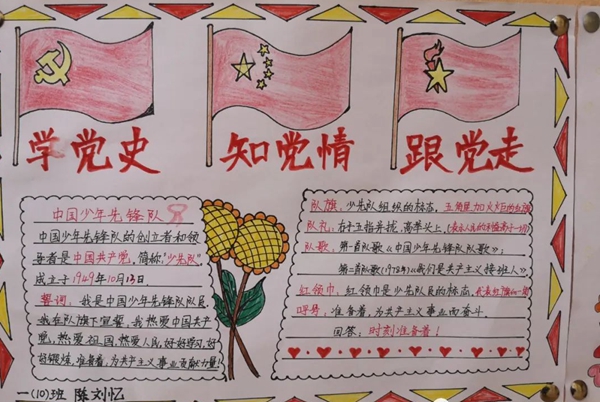 学党史
知党情
跟党走
中国少年先锋队
中国少年先锋队的创立者和领
导者是中国共产党，简称："少先队"
成立于1949年10月13日.
誓词：我是中国少年先锋队队员
我在队旗下宣誓，我热爱中国共产
党，热爱祖国，热爱人民，好好学习，好
好锻炼，准备着，为共产主义事业贡献力量！
队旗：少先队组织的标志，五角星加火炬的
队礼：右手五指并拢，高举头上，
队歌：第一首队歌《中国少年先锋队队歌》；
第二首队歌(1978年)《我们是共产主义接班人》
红领巾：红领巾是少先队员的标志，
呼号：准备着，为共产主义事业而奋斗
回答：时刻准备着！
一(10)班 陈刘忆